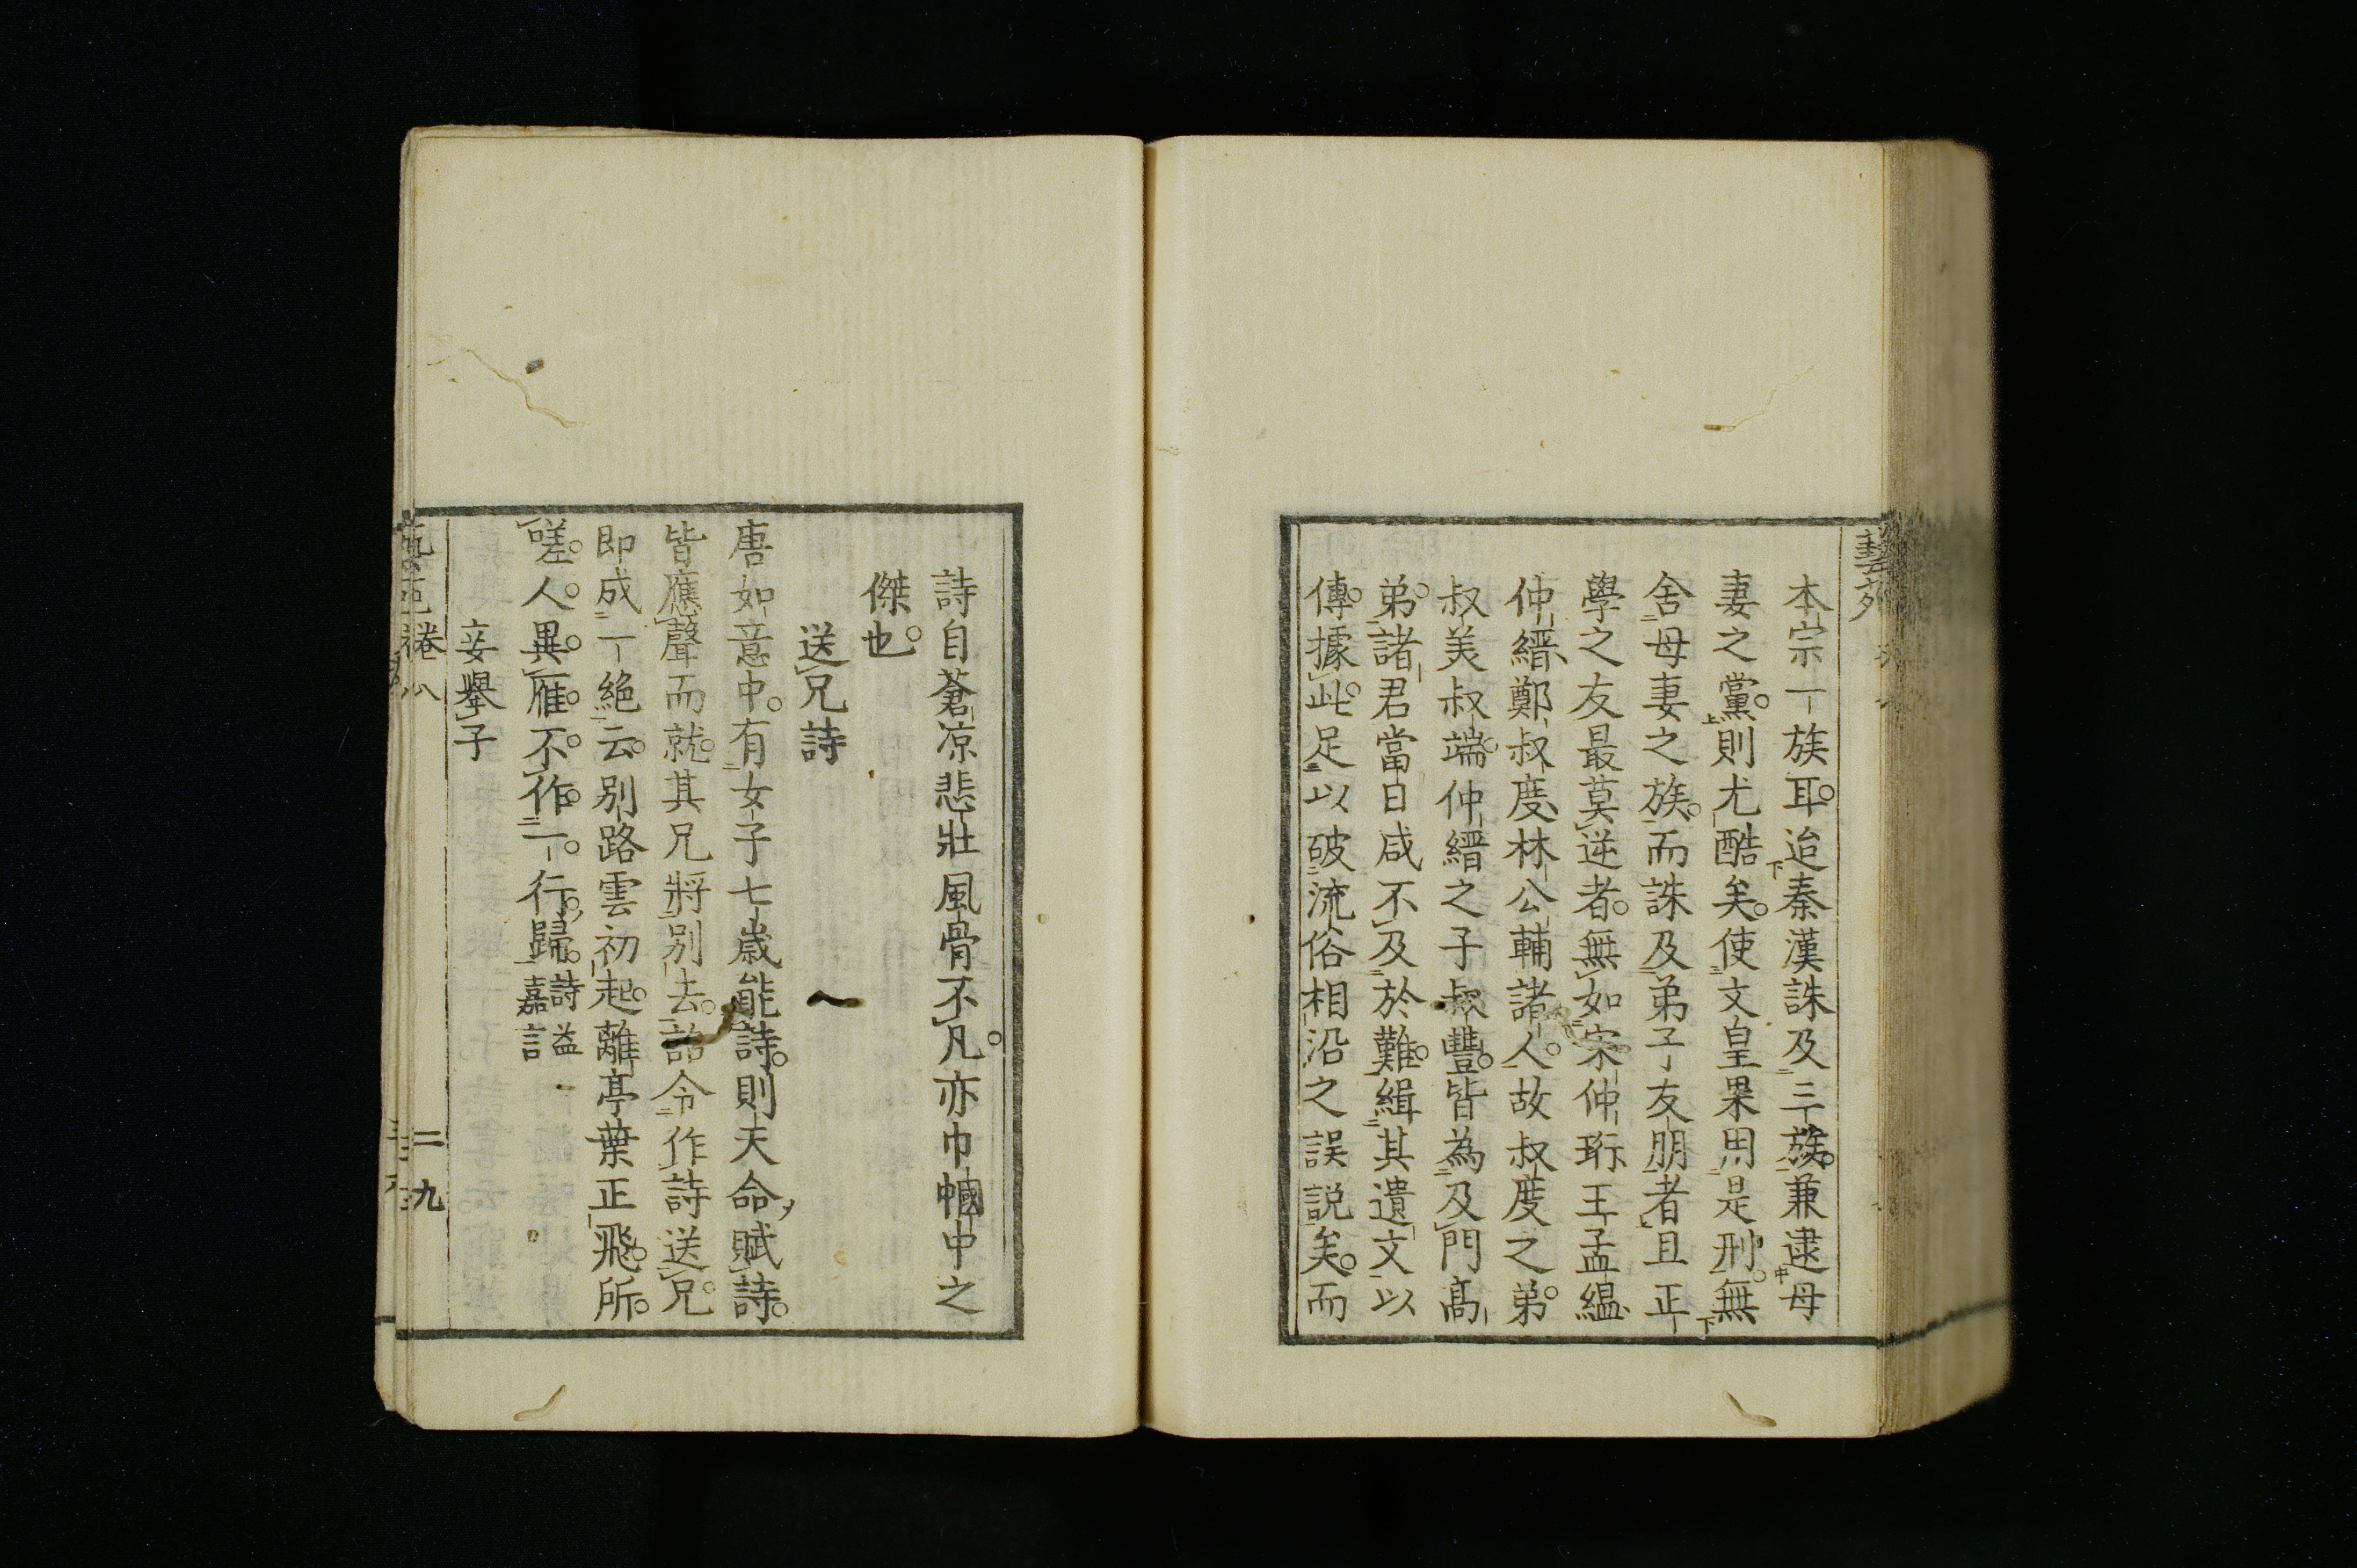 本宗一族耳。迨秦漢誅及三族。兼逮母
妻之黨。則尤酷矣。使文皇果用是刑。無
舍母妻之族。而誅及弟子友朋者。且正
學之友最莫逆者。無如宋仲珩、王孟縕、
仲縉、鄭叔度、林公輔諸人。故叔度之弟。
叔美叔端。仲縉之子叔豐。皆為及門高
弟。諸君當日咸不及於難。緝其遺文以
傳。據此。足以破流俗相沿之誤説矣。而
詩自蒼凉悲壯風骨不凡。亦巾幗中之
傑也。
送兄詩
唐如意中。有女子七歲能詩。則天命賦詩。
皆應聲而就。其兄將別去。詔令作詩送兄。
即成一絶云。別路雲初起。離亭葉正飛。所
嗟。人。異。雁。不。作。一。行。歸。詩謚
嘉言
妾擧子
卷八
二九